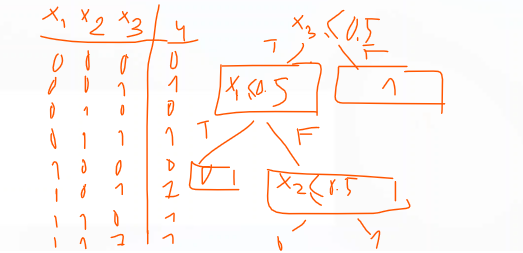 x₁ x₂ x₃ y
0 0 0 0
0 0 1 1
0 1 0 0
0 1 1 1
1 0 0 0
1 0 1 1
1 1 0 1
1 1 1 1
x₃ ≤ 0.5
T F
x₁ ≤ 0.5 1
T F
0 x₂ ≤ 0.5
0 1